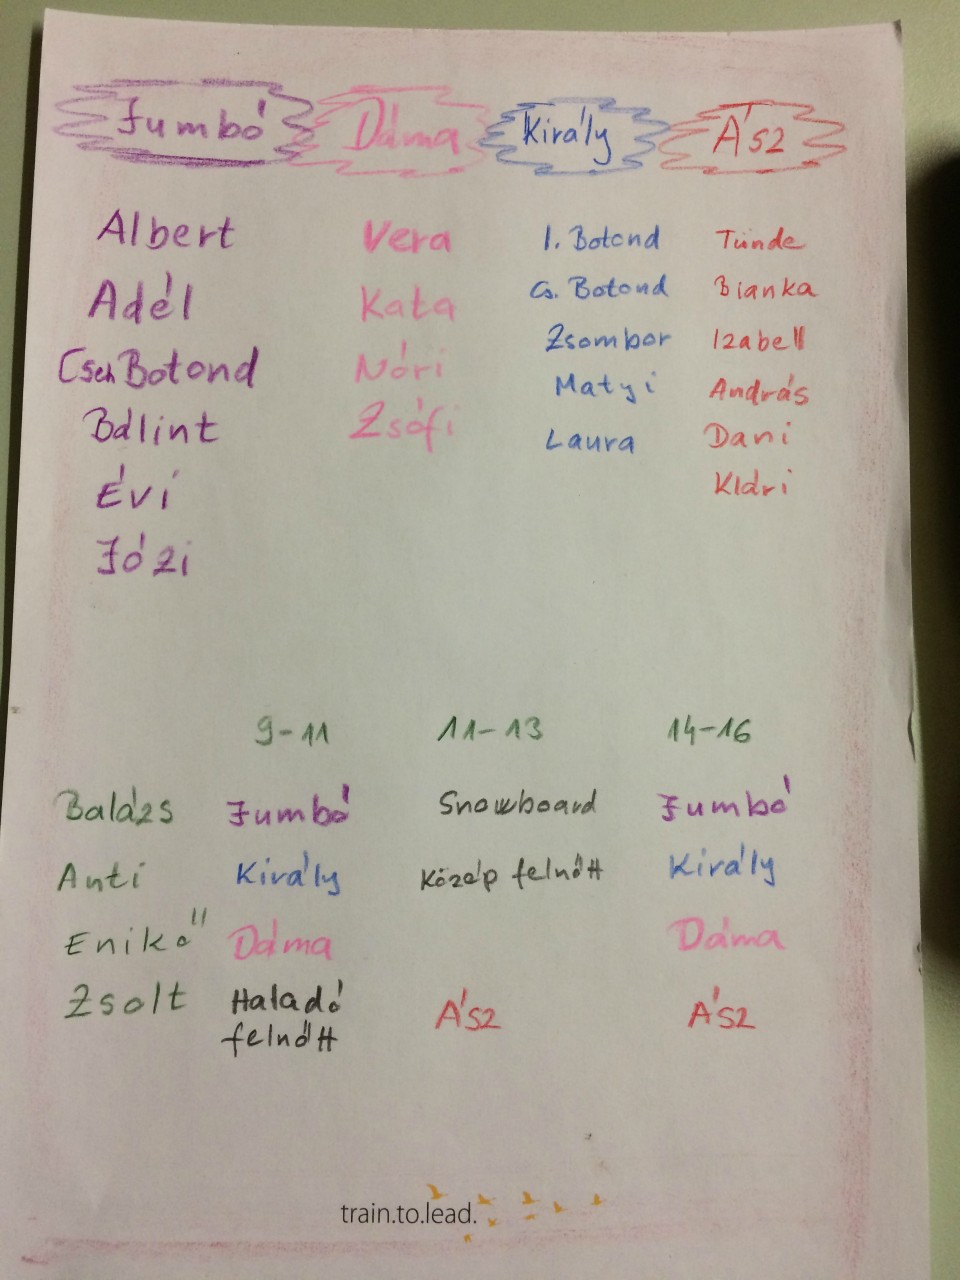 Jumbó Dáma Király Ász
Albert Vera I. Botond Tünde
Adél Kata Cs. Botond Bianka
Botond Nóri Zsombor Izabell
Bálint Zsófi Matyi András
Évi Laura Dani
Józi Klári
9-11 11-13 14-16
Balázs Jumbó Snowboard Jumbó
Anti Király Közép felnőtt Király
Enikő Dáma Dáma
Zsolt Haladó Ász Ász
felnőtt
train.to.lead.